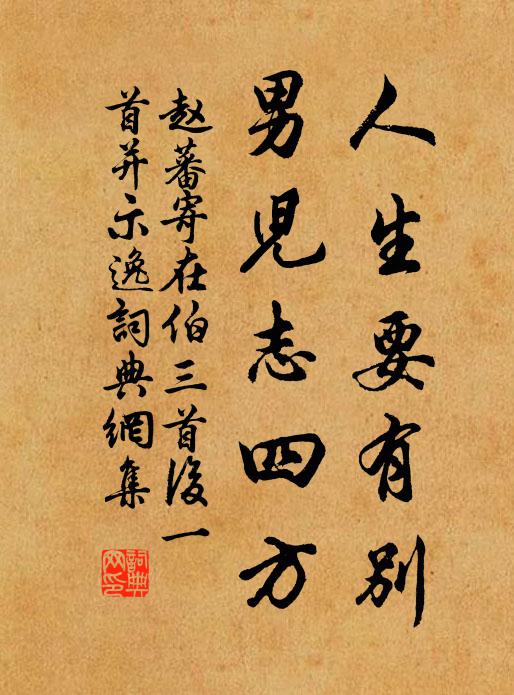 人生要有别
男児志四方
赵蕃寄在伯三首后一
首并示逸詞典網集
詞典
网印